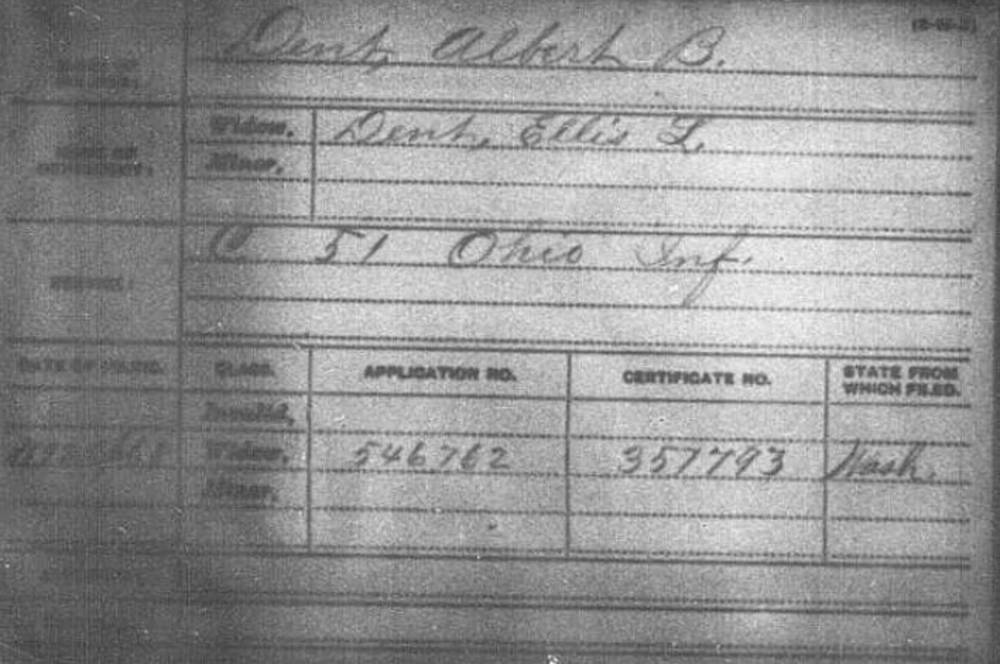 Dent, Albert B.
NAME OF SOLDIER:
NAME OF DEPENDENT:
Widow, Dent, Ellis L.
Minor,
SERVICE: C 51 Ohio Inf.
DATE OF FILING. CLASS. APPLICATION NO. CERTIFICATE NO. STATE FROM WHICH FILED.
Invalid,
Widow, 546762 357793 Wash.
Minor,